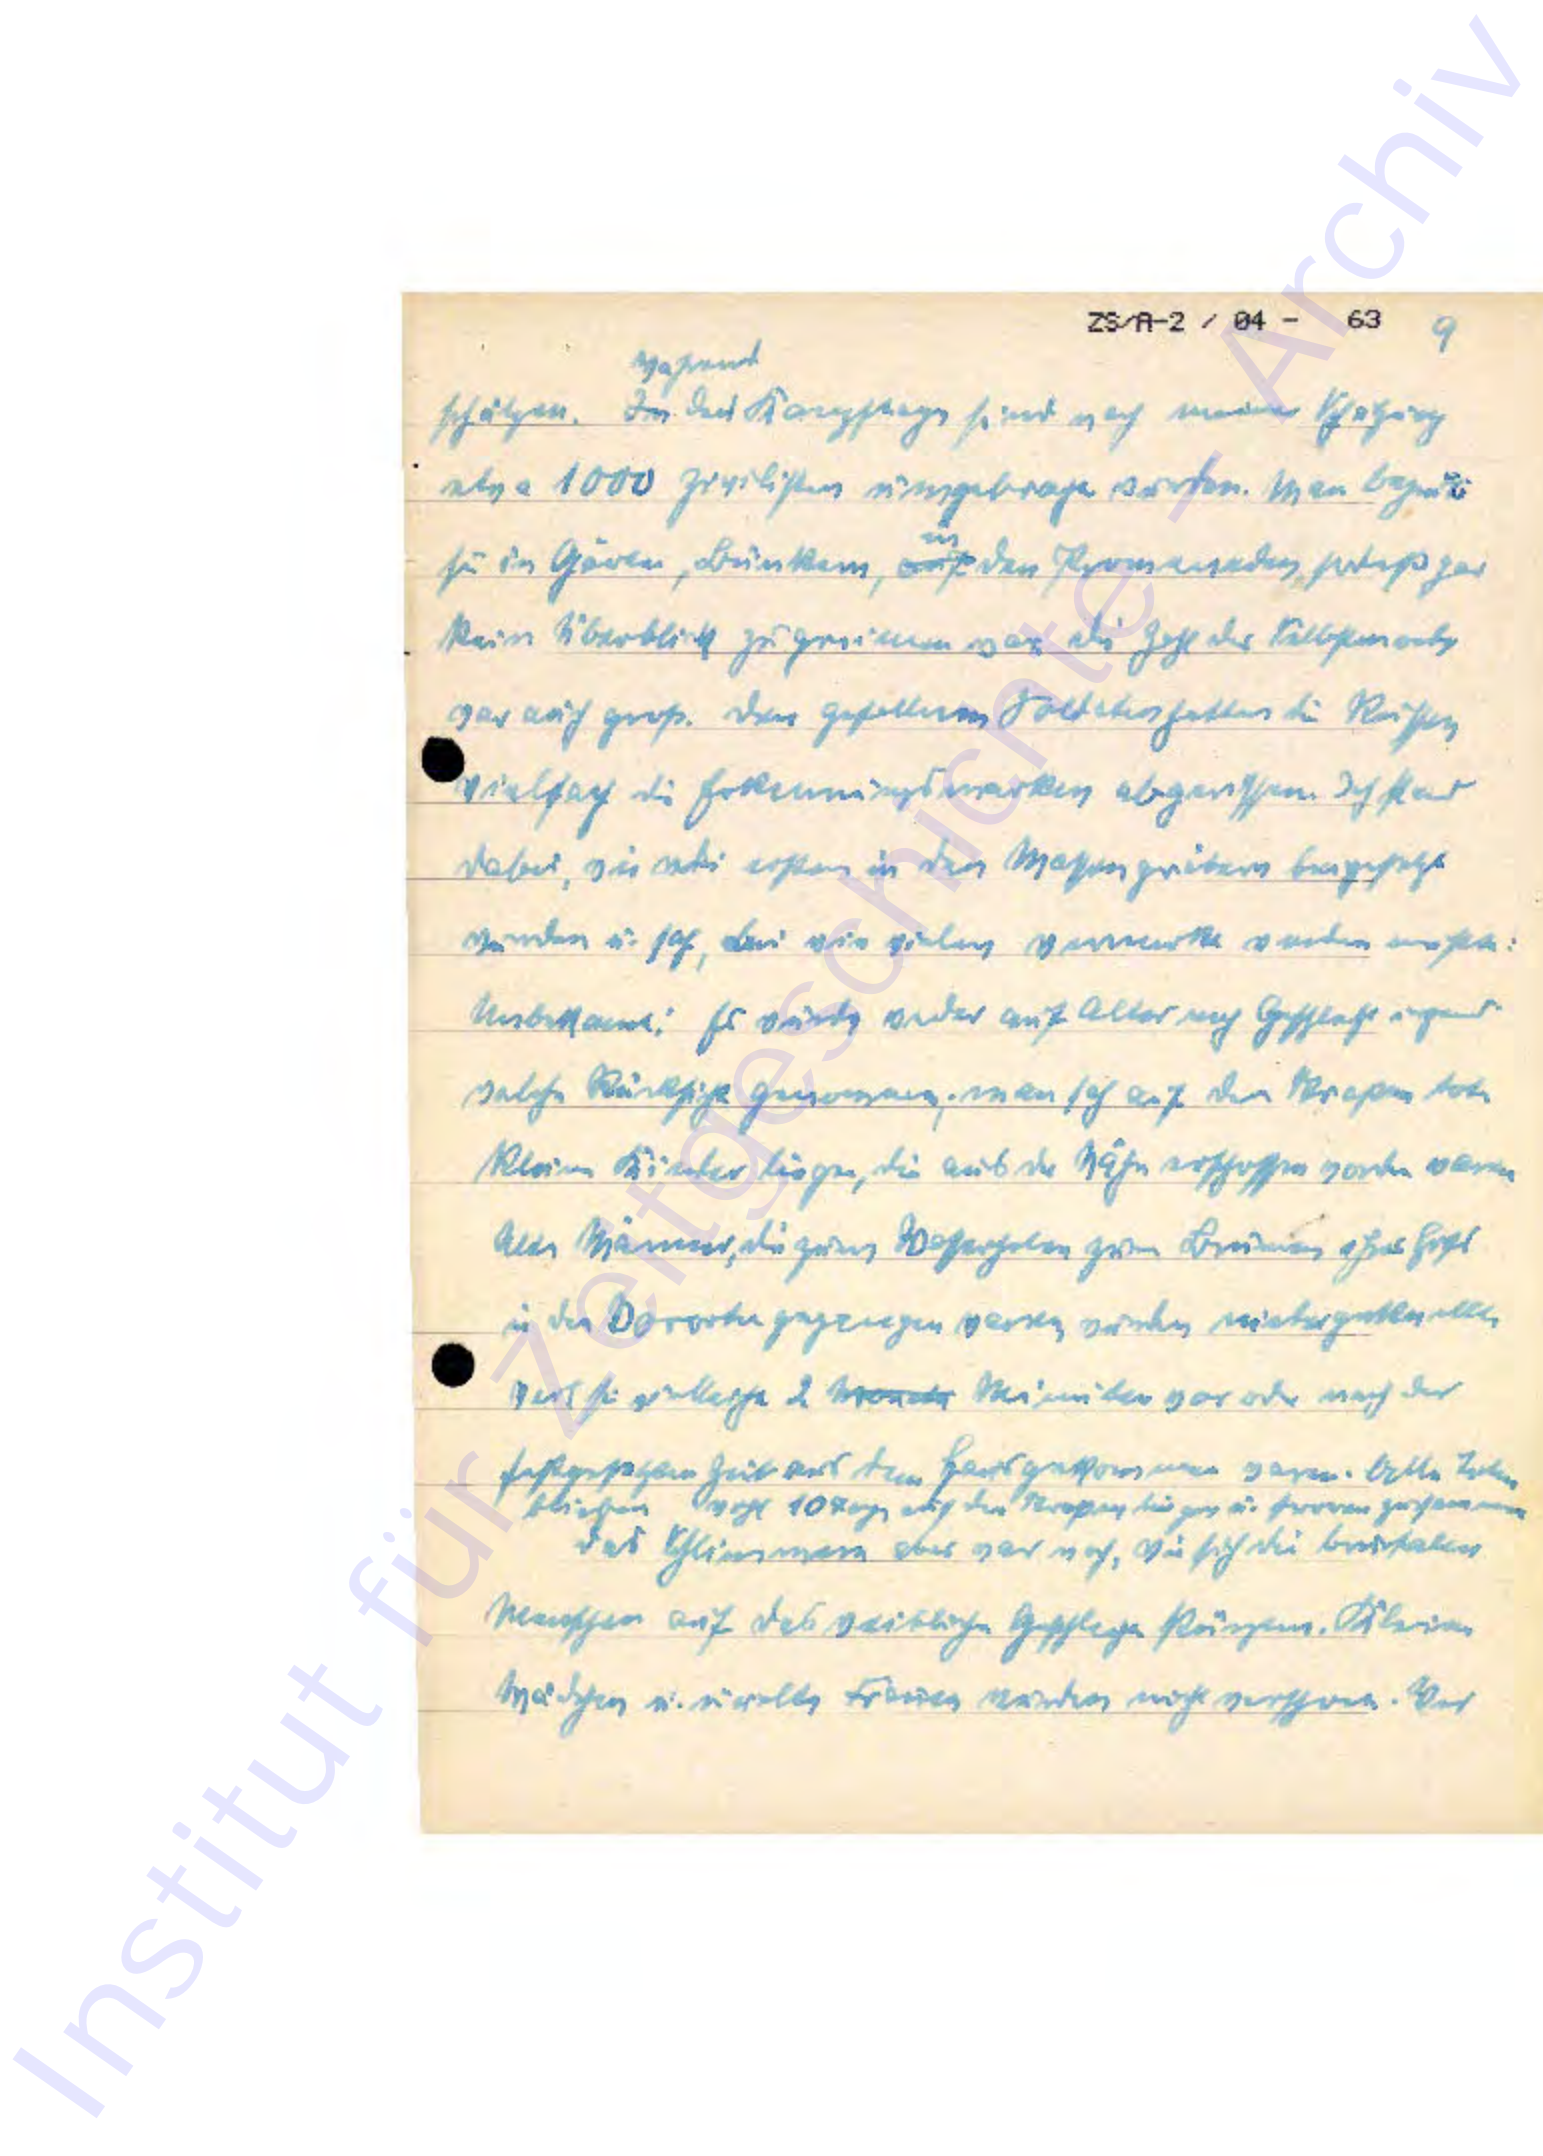 ZS/A-2 / 04 - 63 9
während
schätzen. In den Kampftagen sind nach meiner Schätzung
etwa 1000 Zivilisten umgebracht worden. Man begrub
sie in Gärten, Bunkern, auf in den Promenaden, sodaß gar
kein Überblick zu gewinnen war die Zahl der Selbstmorde
war auch groß. Den gefallenen Soldaten hatten die Russen
vielfach die Erkennungsmarken abgerissen. Ich stand
dabei, wie die ersten in den Massengräbern beigesetzt
wurden u. sah, bei wie vielen vermerkt werden mußte:
Unbekannt! Es wurde weder auf Alter noch Geschlecht irgend
welche Rücksicht genommen, man sah auf den Straßen tote
kleine Kinder liegen, die aus der Nähe erschossen worden waren
Alte Männer, die zum Wasserholen zum Brunnen ihres Hofs
in den Vororten gegangen waren, wurden niedergeknallt,
weil sie vielleicht 2 Minuten vor oder nach der
festgesetzten Zeit aus dem Haus gekommen waren. Alle Toten
blieben wohl 10 Tage auf den Straßen liegen u. froren zusammen
Das Schlimmste aber war noch, wie sich die brutalen
Menschen auf das weibliche Geschlecht stürzten. Kleine
Mädchen u. uralte Frauen wurden nicht verschont. Vor